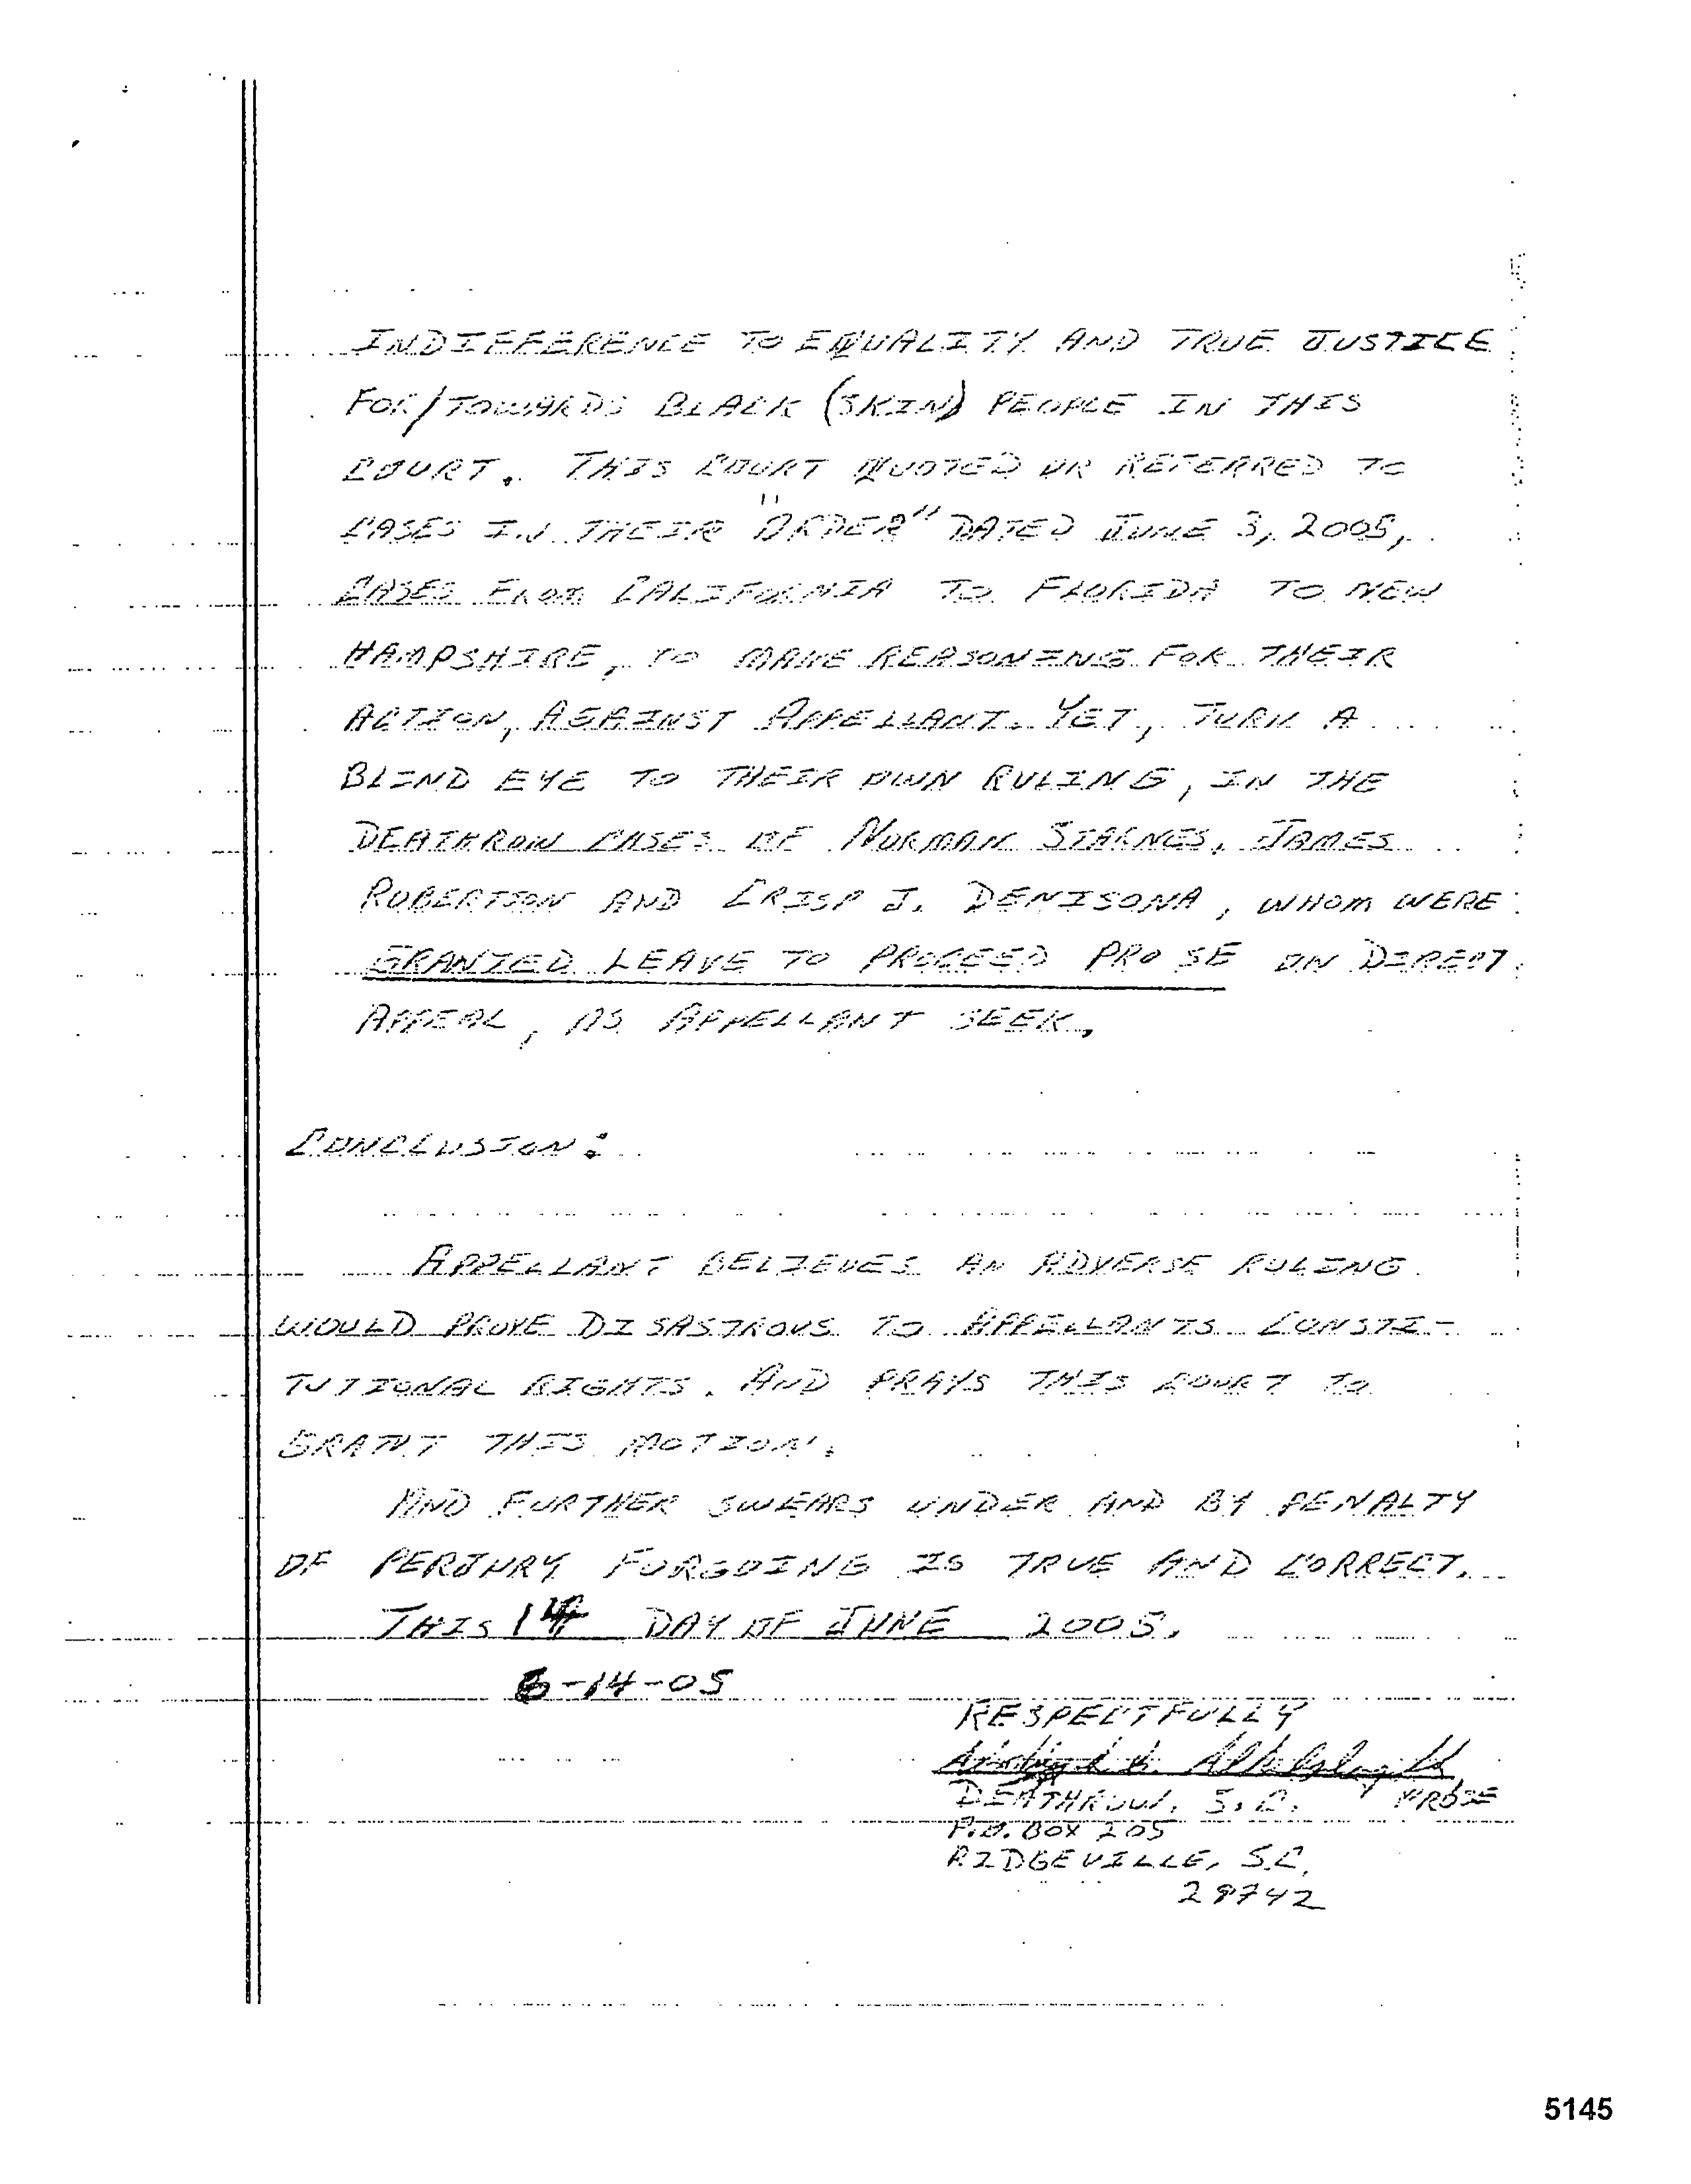 INDIFFERENCE TO EQUALITY AND TRUE JUSTICE
FOR/TOWARDS BLACK (SKIN) PEOPLE IN THIS
COURT. THIS COURT QUOTED OR REFERRED TO
CASES IN THEIR "ORDER" DATED JUNE 3, 2005,
CASES FROM CALIFORNIA TO FLORIDA TO NEW
HAMPSHIRE, TO MAKE REASONING FOR THEIR
ACTION, AGAINST APPELLANT. YET, TURN A
BLIND EYE TO THEIR OWN RULING, IN THE
DEATHROW CASES OF NORMAN STARNES, JAMES
ROBERTSON AND CRISP J. DENISONA, WHOM WERE
GRANTED LEAVE TO PROCEED PRO SE ON DIRECT
APPEAL, AS APPELLANT SEEK.
CONCLUSION:
APPELLANT BELIEVES AN ADVERSE RULING
WOULD PROVE DISASTROUS TO APPELLANTS CONSTI-
TUTIONAL RIGHTS. AND PRAYS THIS COURT TO
GRANT THIS MOTION.
AND FURTHER SWEARS UNDER AND BY PENALTY
OF PERJURY FORGOING IS TRUE AND CORRECT.
THIS 14 DAY OF JUNE 2005.
6-14-05
RESPECTFULLY
DEATHROW, S.C. PROSE
P.O. BOX 205
RIDGEVILLE, S.C.
29742
5145